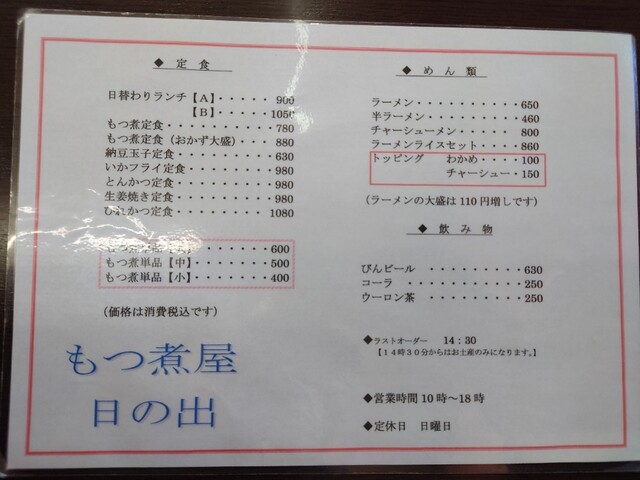 ◆ 定 食
日替わりランチ【A】・・・・・ 900
【B】・・・・・ 1050
もつ煮定食・・・・・・・・・・780
もつ煮定食(おかず大盛)・・・ 880
納豆玉子定食・・・・・・・・・630
いかフライ定食・・・・・・・・980
とんかつ定食・・・・・・・・・980
生姜焼き定食・・・・・・・・・980
ひれかつ定食・・・・・・・・1080
もつ煮単品・・・・・・・600
もつ煮単品【中】・・・・・・・500
もつ煮単品【小】・・・・・・・400
(価格は消費税込です)
もつ煮屋
日の出
◆ め ん 類
ラーメン・・・・・・・・・・650
半ラーメン・・・・・・・・・460
チャーシューメン・・・・・ 800
ラーメンライスセット・・・・860
トッピング わかめ・・・・100
チャーシュー・150
(ラーメンの大盛は 110 円増しです)
◆ 飲 み 物
びんビール ・・・・・・・・630
コーラ ・・・・・・・・・・250
ウーロン茶 ・・・・・・・・250
◆ラストオーダー 14:30
【14時30分からはお土産のみになります。】
◆営業時間 10 時～18 時
◆定休日 日曜日